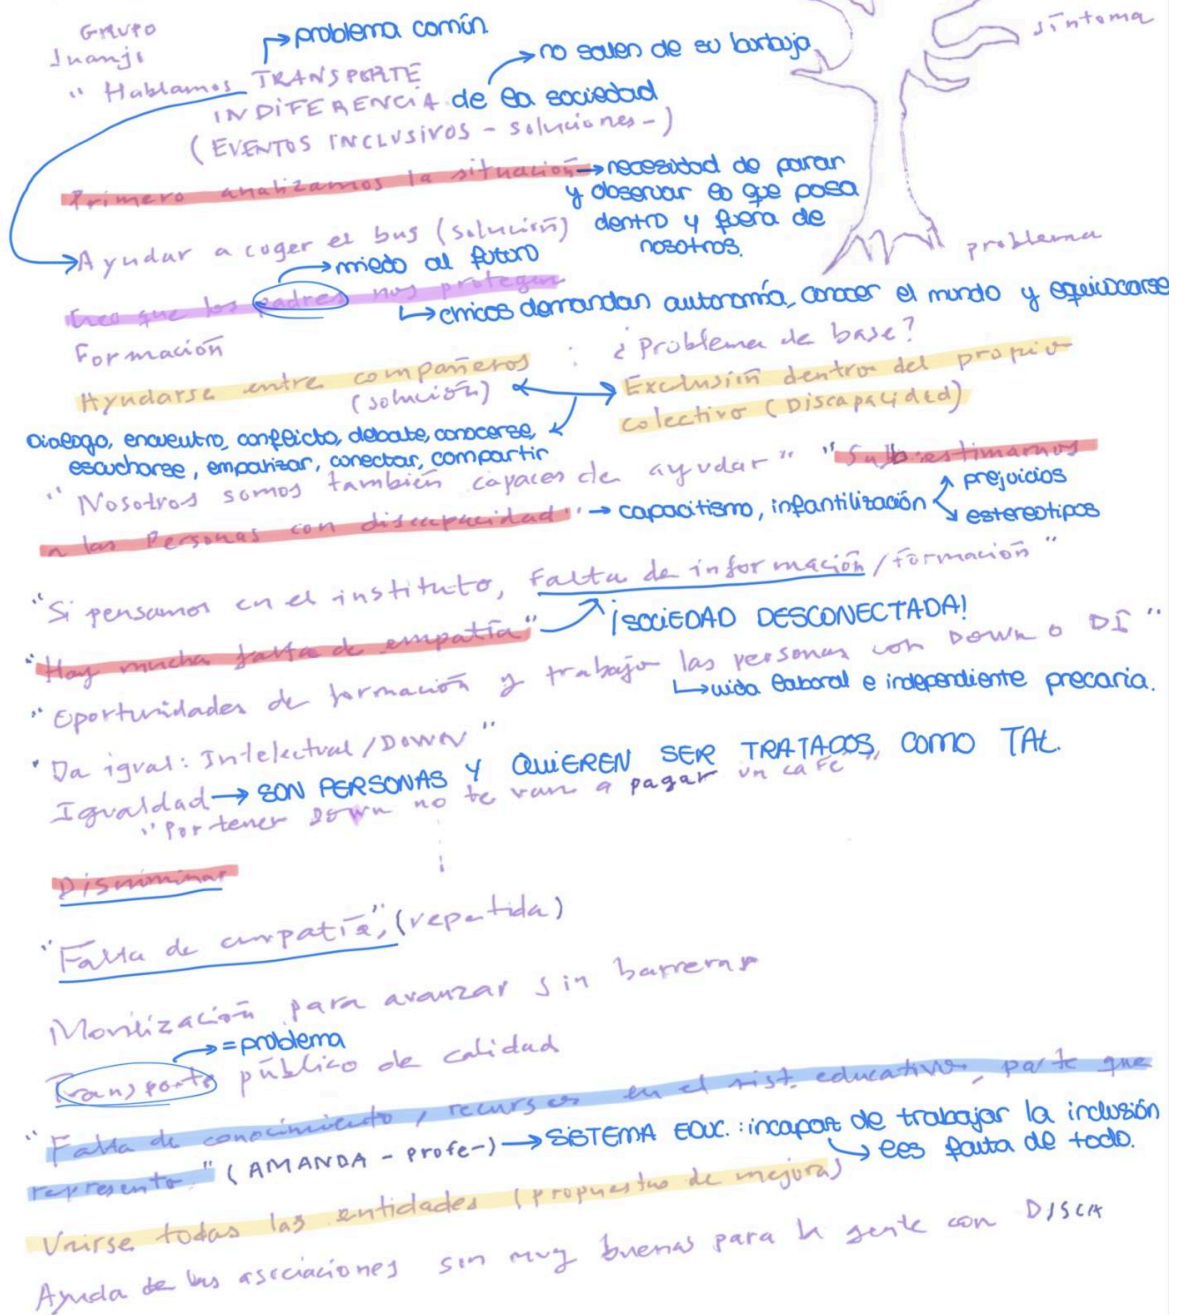 Grupo
Juanjo
→ problema común
→ no salen de su burbuja
"Hablamos TRANSPORTE
INDIFERENCIA de la sociedad
(EVENTOS INCLUSIVOS - soluciones-)
síntoma
Primero analizamos la situación → necesidad de parar
y observar lo que pasa
dentro y fuera de
nosotros.
Ayudar a coger el bus (solución)
problema
→ miedo al futuro
Creo que los padres nos protegen
↳ chicos demandan autonomía, conocer el mundo y equivocarse
Formación
¿Problema de base?
Ayudarse entre compañeros
(solución)
Exclusión dentro del propio
colectivo (Discapacidad)
Dialogo, encuentro, conflicto, debate, conocerse,
escucharse, empatizar, conectar, compartir
"Nosotros somos también capaces de ayudar" "Subestimarnos
a las Personas con discapacidad" → capacitismo, infantilización
prejuicios
estereotipos
"Si pensamos en el instituto, Falta de información/formación"
"Hay mucha falta de empatía" ¡SOCIEDAD DESCONECTADA!
"Oportunidades de formación y trabajo las personas con Down o DI"
↳ vida laboral e independiente precaria.
"Da igual: Intelectual/DOWN"
Igualdad → SON PERSONAS Y QUIEREN SER TRATADOS, COMO TAL.
"Por tener Down no te van a pagar un café"
Discriminar
"Falta de empatía", (repetida)
Movilización para avanzar sin barreras
→ = problema
Transporte público de calidad
"Falta de conocimiento, recursos en el sist. educativo, parte que
represento" (AMANDA - profe-) → SISTEMA EDUC.: incapaz de trabajar la inclusión
↳ les falta de todo.
Unirse todas las entidades (propuestas de mejora)
Ayuda de las asociaciones son muy buenas para la gente con DISCA